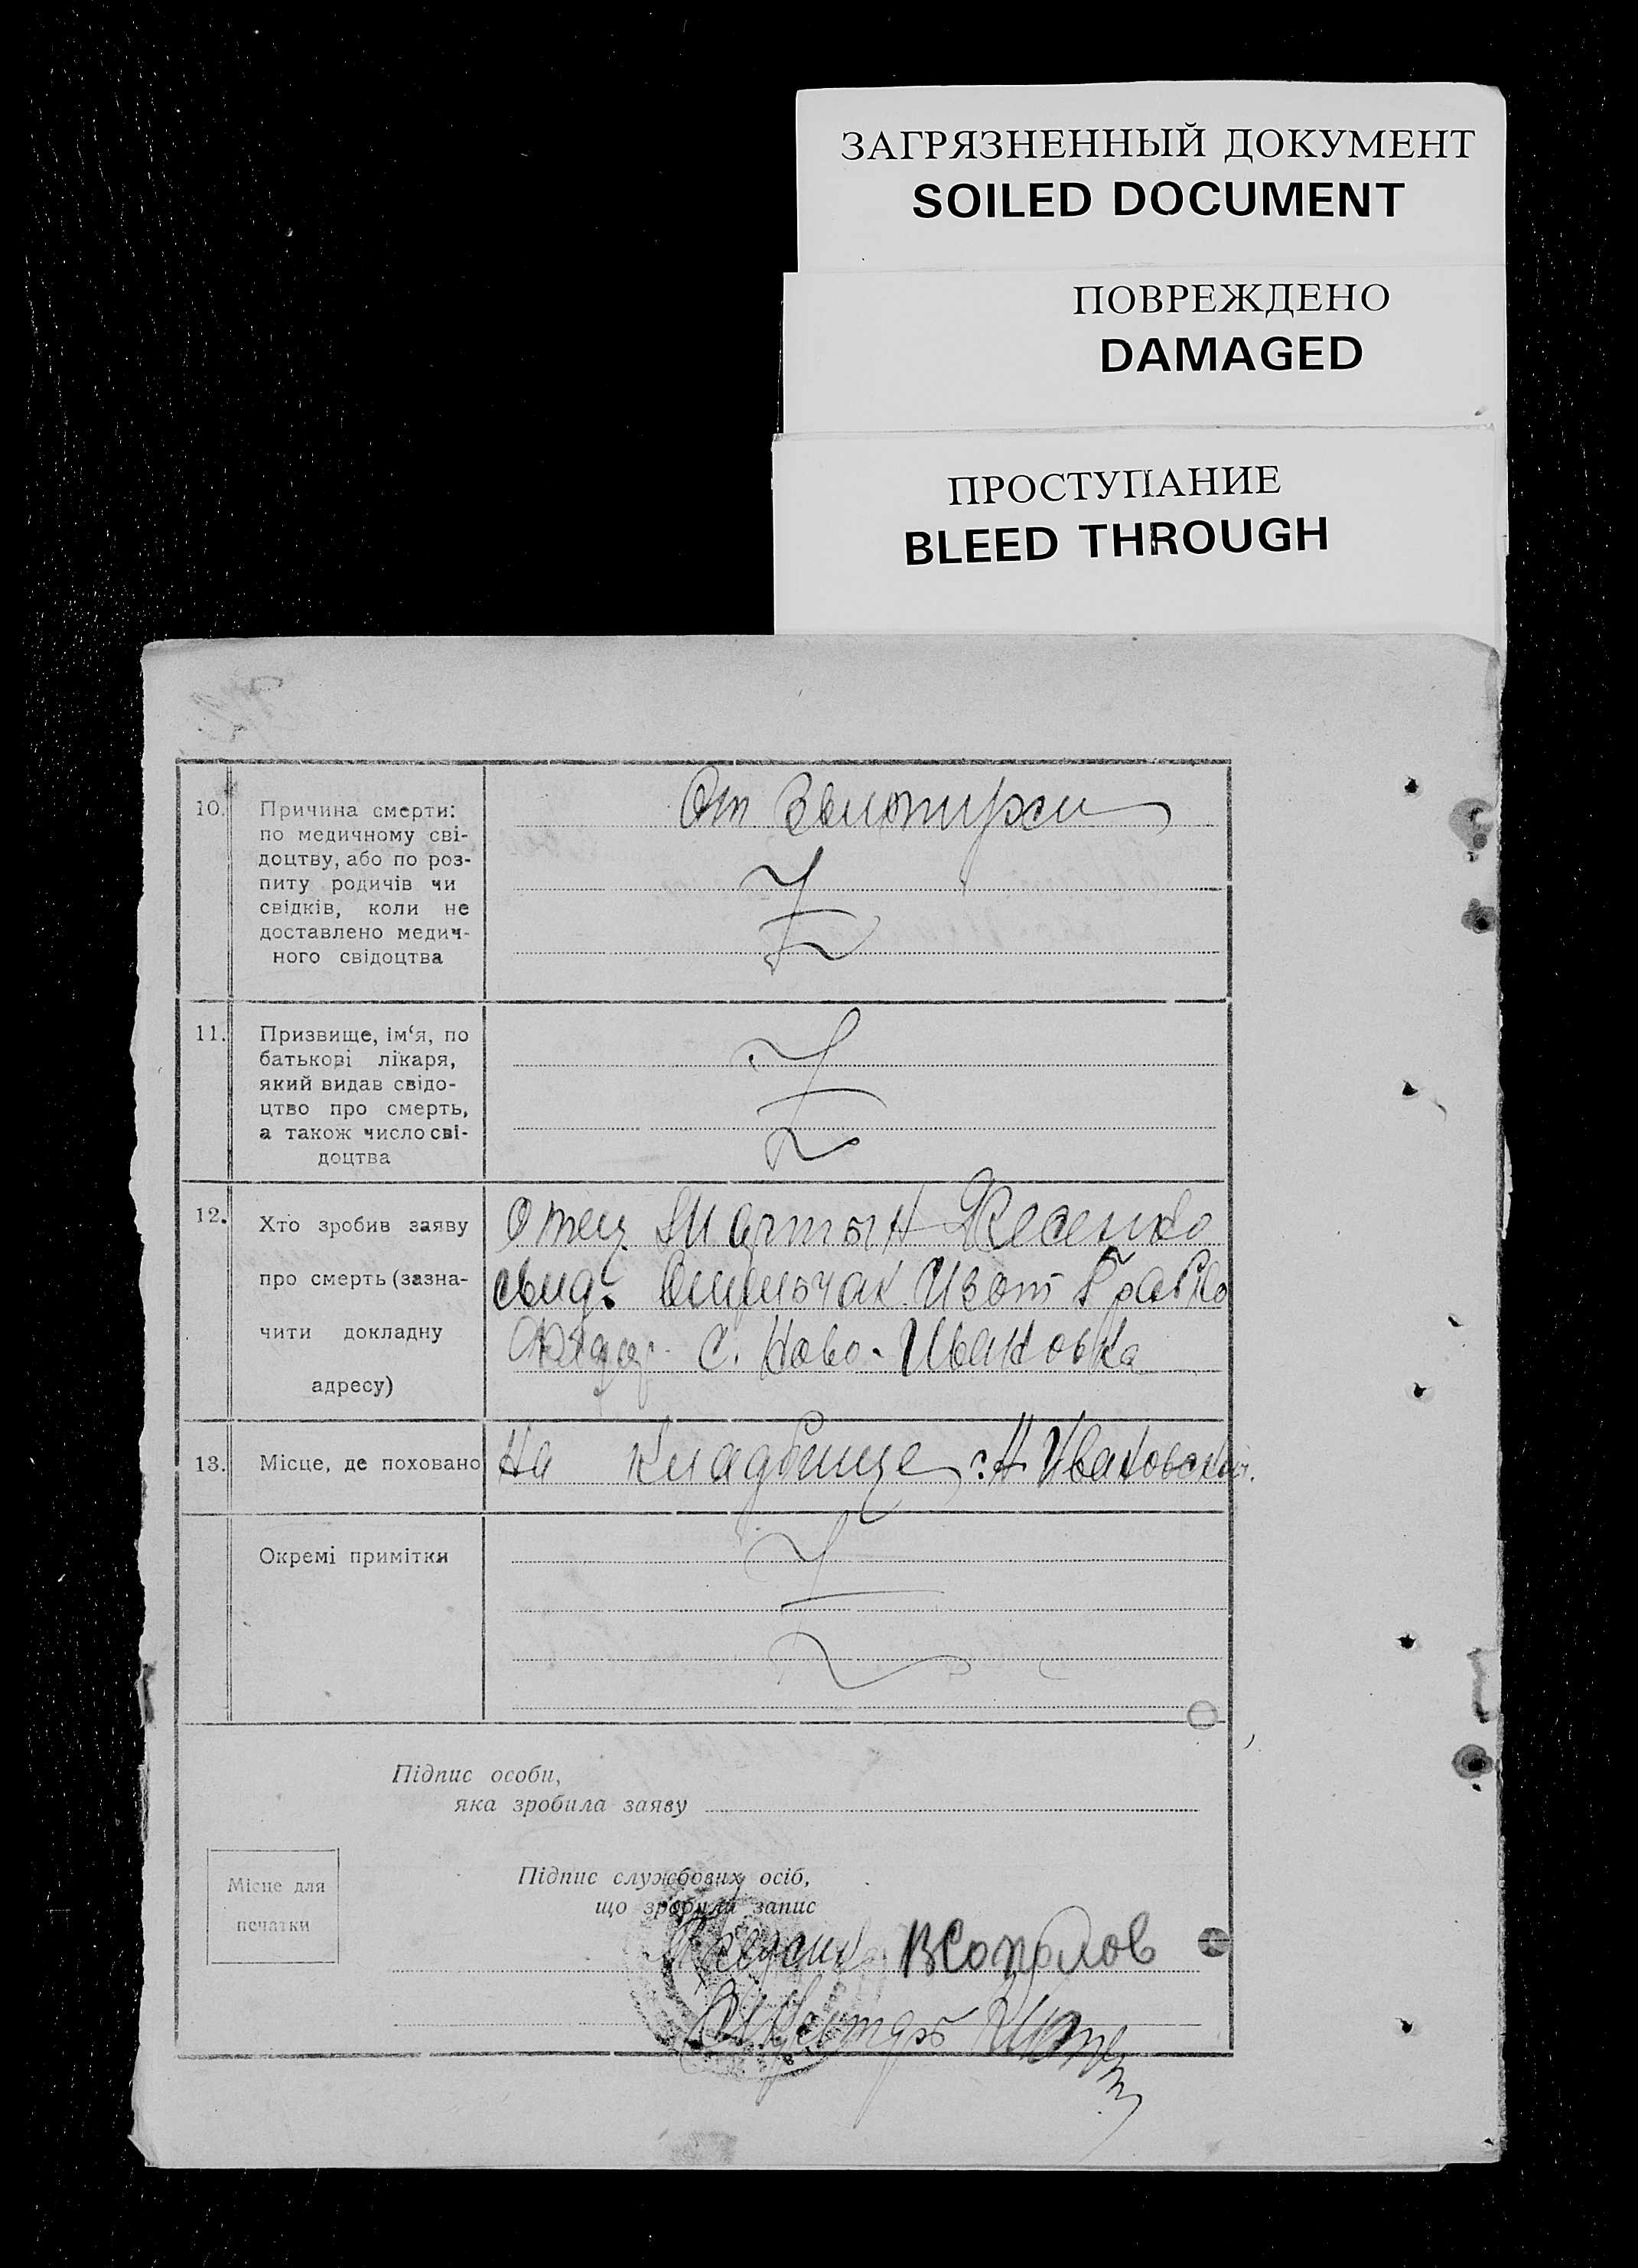 ЗАГРЯЗНЕННЫЙ ДОКУМЕНТ
SOILED DOCUMENT
ПОВРЕЖДЕНО
DAMAGED
ПРОСТУПАНИЕ
BLEED THROUGH
10. Причина смерти:
по медичному сві-
доцтву, або по роз-
питу родичів чи
свідків, коли не
доставлено медич-
ного свідоцтва
От
11. Призвище, ім‘я, по
батькові лікаря,
який видав свідо-
цтво про смерть,
а також число сві-
доцтва
12. Хто зробив заяву
про смерть (зазна-
чити докладну
адресу)
Отец Мартын
Изот
с. Ново-Ивановка
13. Місце, де поховано
На кладбище с. Н Ивановской
Окремі примітки
Підпис особи,
яка зробила заяву
Місце для
печатки
Підпис службових осіб,
що зробили запис